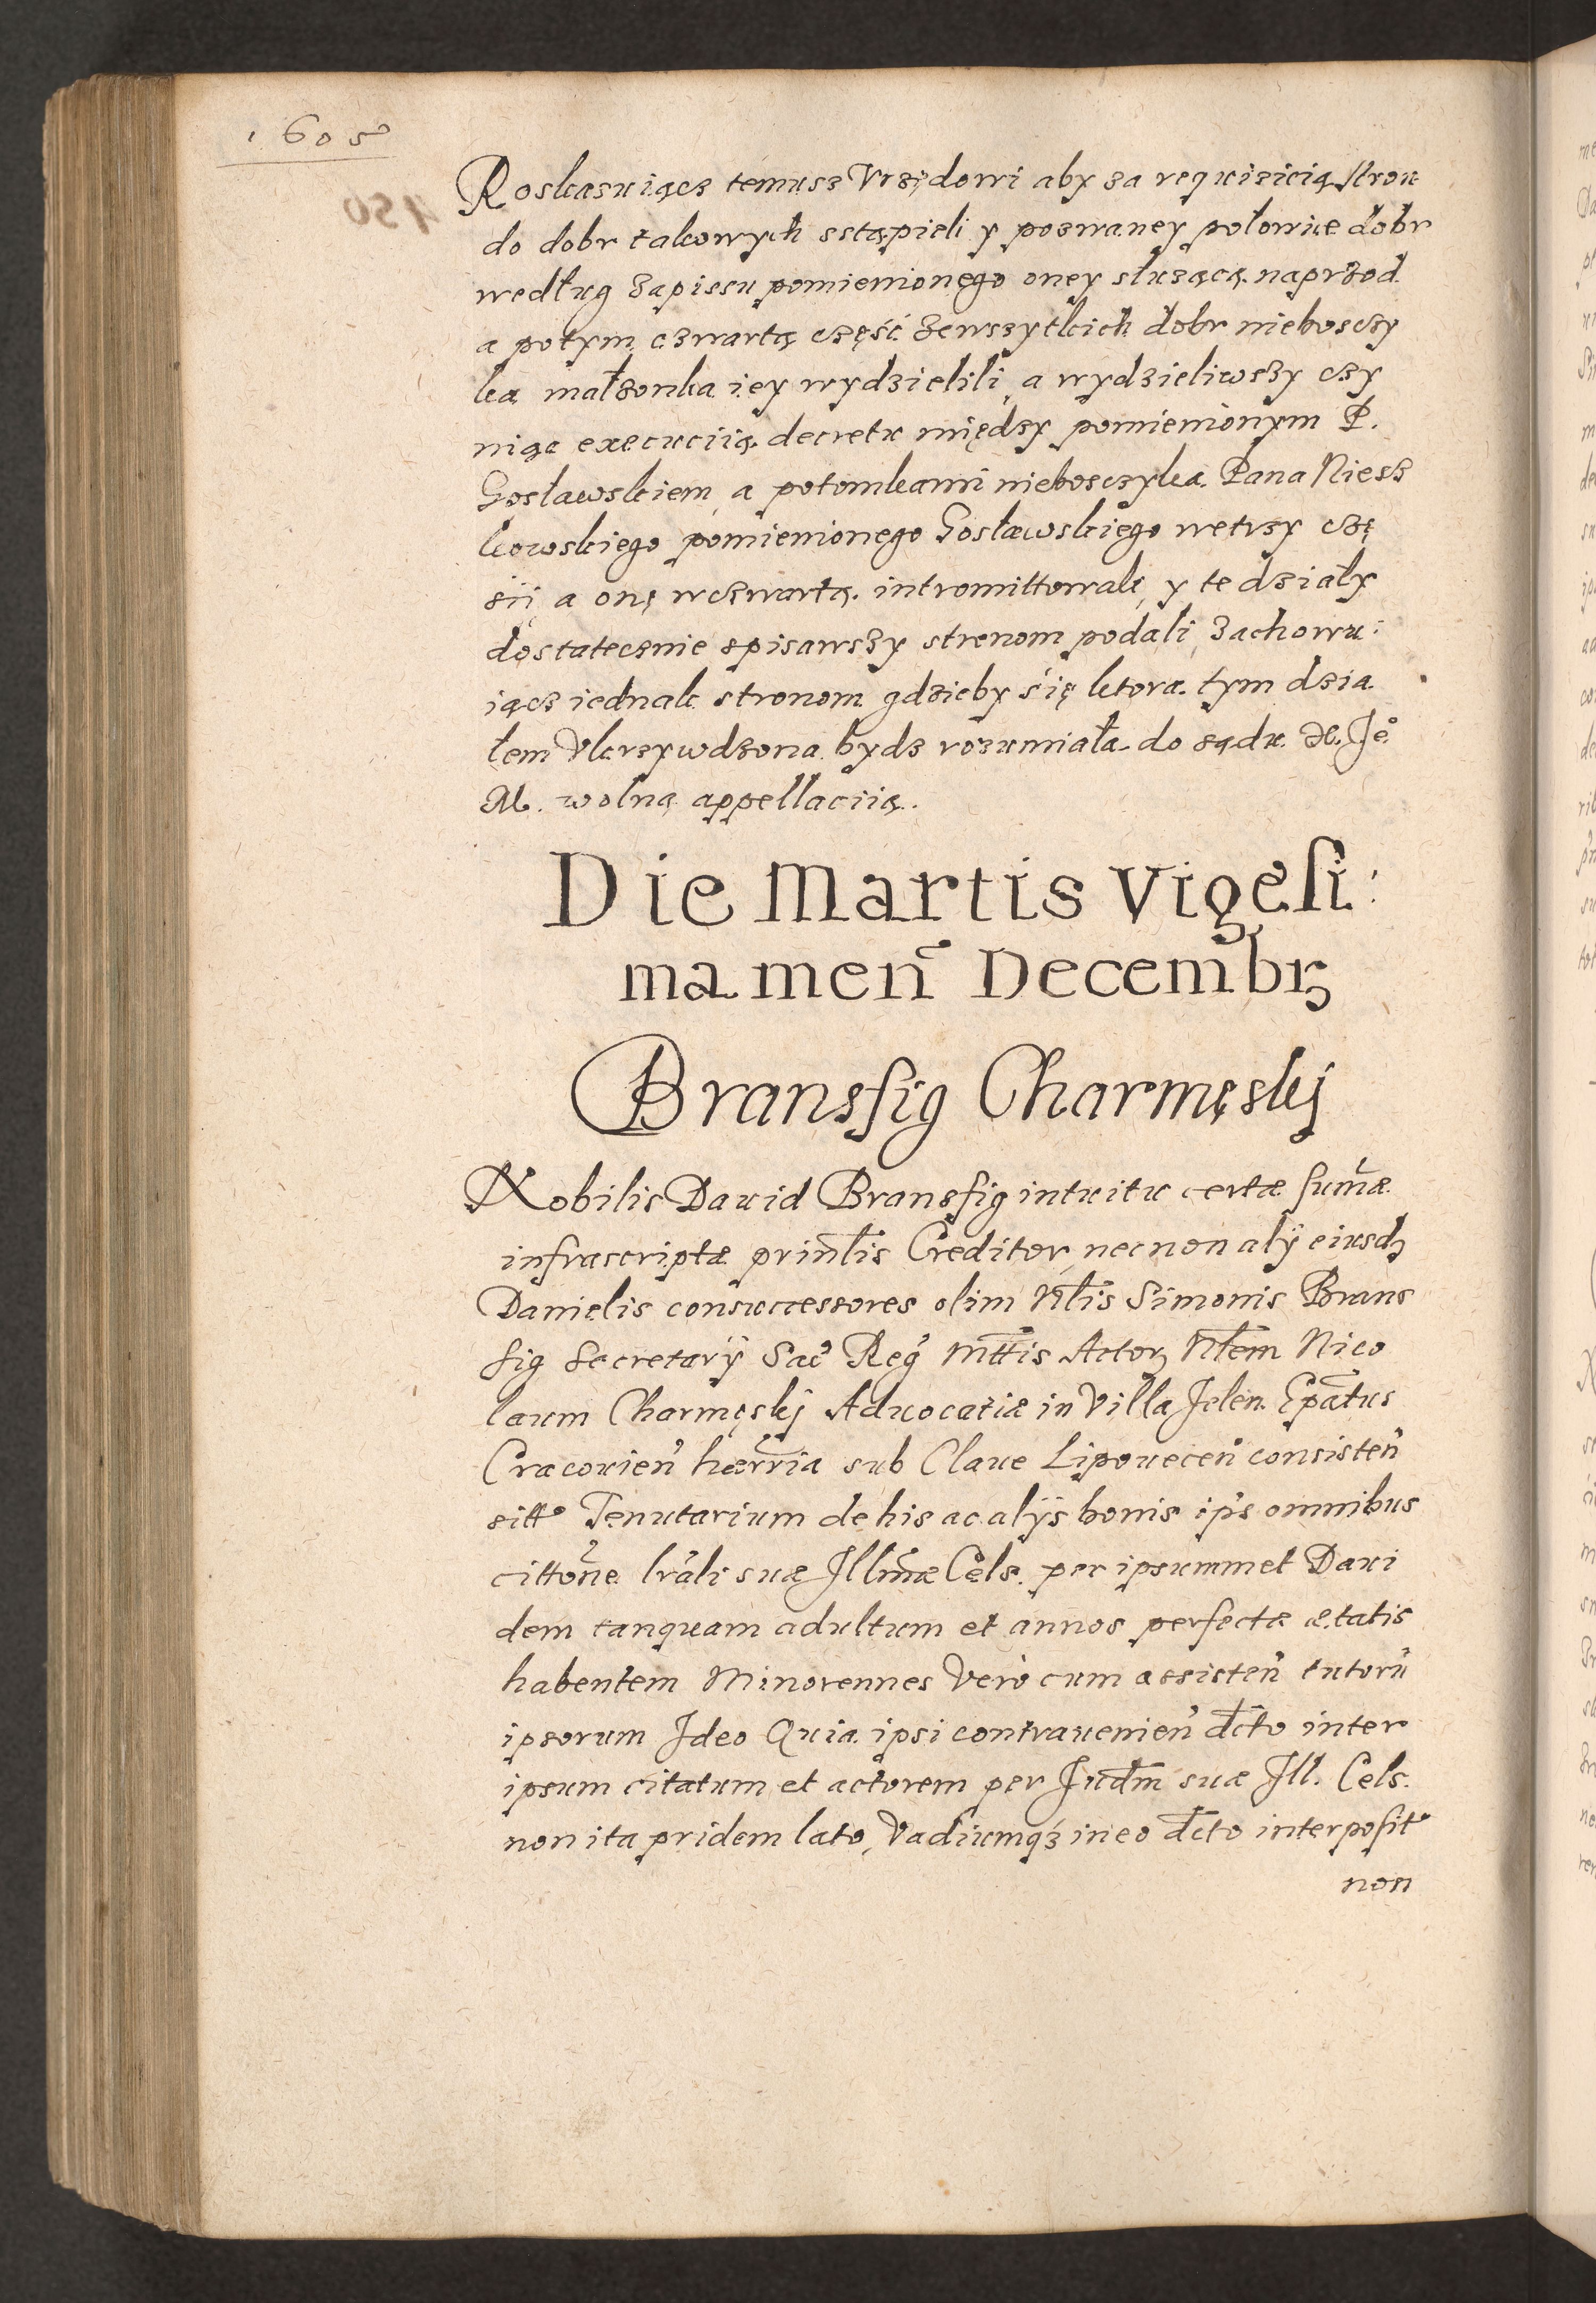 1605
450
Roskasuiącz temusz Vrzędowi aby za requizicią stron
do dobr takowych sstąpieli y pozwaney połowice dobr
według zapissu pomienionego oney służącą naprzod
a potym czwartą część zewszytkich dobr nieboszczy
ka małżonka iey wydzielili, a wydzieliwszy czy
niąc execuciią decretu między pomienionym P.
Gosławskiem, a potomkami nieboszczyka Pana Niesz
kowskiego pomienionego Gosławskiego wetrzy czę
sii a onę wczwartą intromittowali, y te działy
dostatecznie spisawszy stronom podali, zachowu:
iącz iednak stronom gdzieby się ktora tym dzia
łem Vkrzywdzona bydz rozumiała do sądu X. Je°
M. wolną appellaciią.
Die Martis Vigesi:
ma men̄ Decembrꝫ
Bransfig Charmęskj
Nobilis Dauid Bransfig intuitu certæ sum̄æ
infrascriptæ prin̄lis Creditor, necnon alÿ eiusdꝫ
Danielis consuccessores olim Nl̄is Simonis Brans
fig Secretarÿ Sac̉ Reg̉ Mtt̄is Actorꝫ Nl̄em Nico
laum Charmęskj Aduocatiæ in Villa Jelen. Epātus
Cracouien̉ hærr̄ia sub Claue Lipouecen̉ consisten̉
sitt° Tenutarium de his ac alÿs bonis ip̉s omnibus
citton̄e lr̉ali suæ Illm̄æ Cels. per ipsummet Daui
dem tanquam adultum et annos perfectæ ætatis
habentem Minorennes Verò cum assisten̉ tutorū
ipsorum Ideo Quia ipsi contrauenien̉ dc̄to inter
ipsum citatum et actorem per Jud̄m suæ Ill. Cels.
non ita pridem lato, Vadiumqꝫ in eo dc̄to interposit°
non